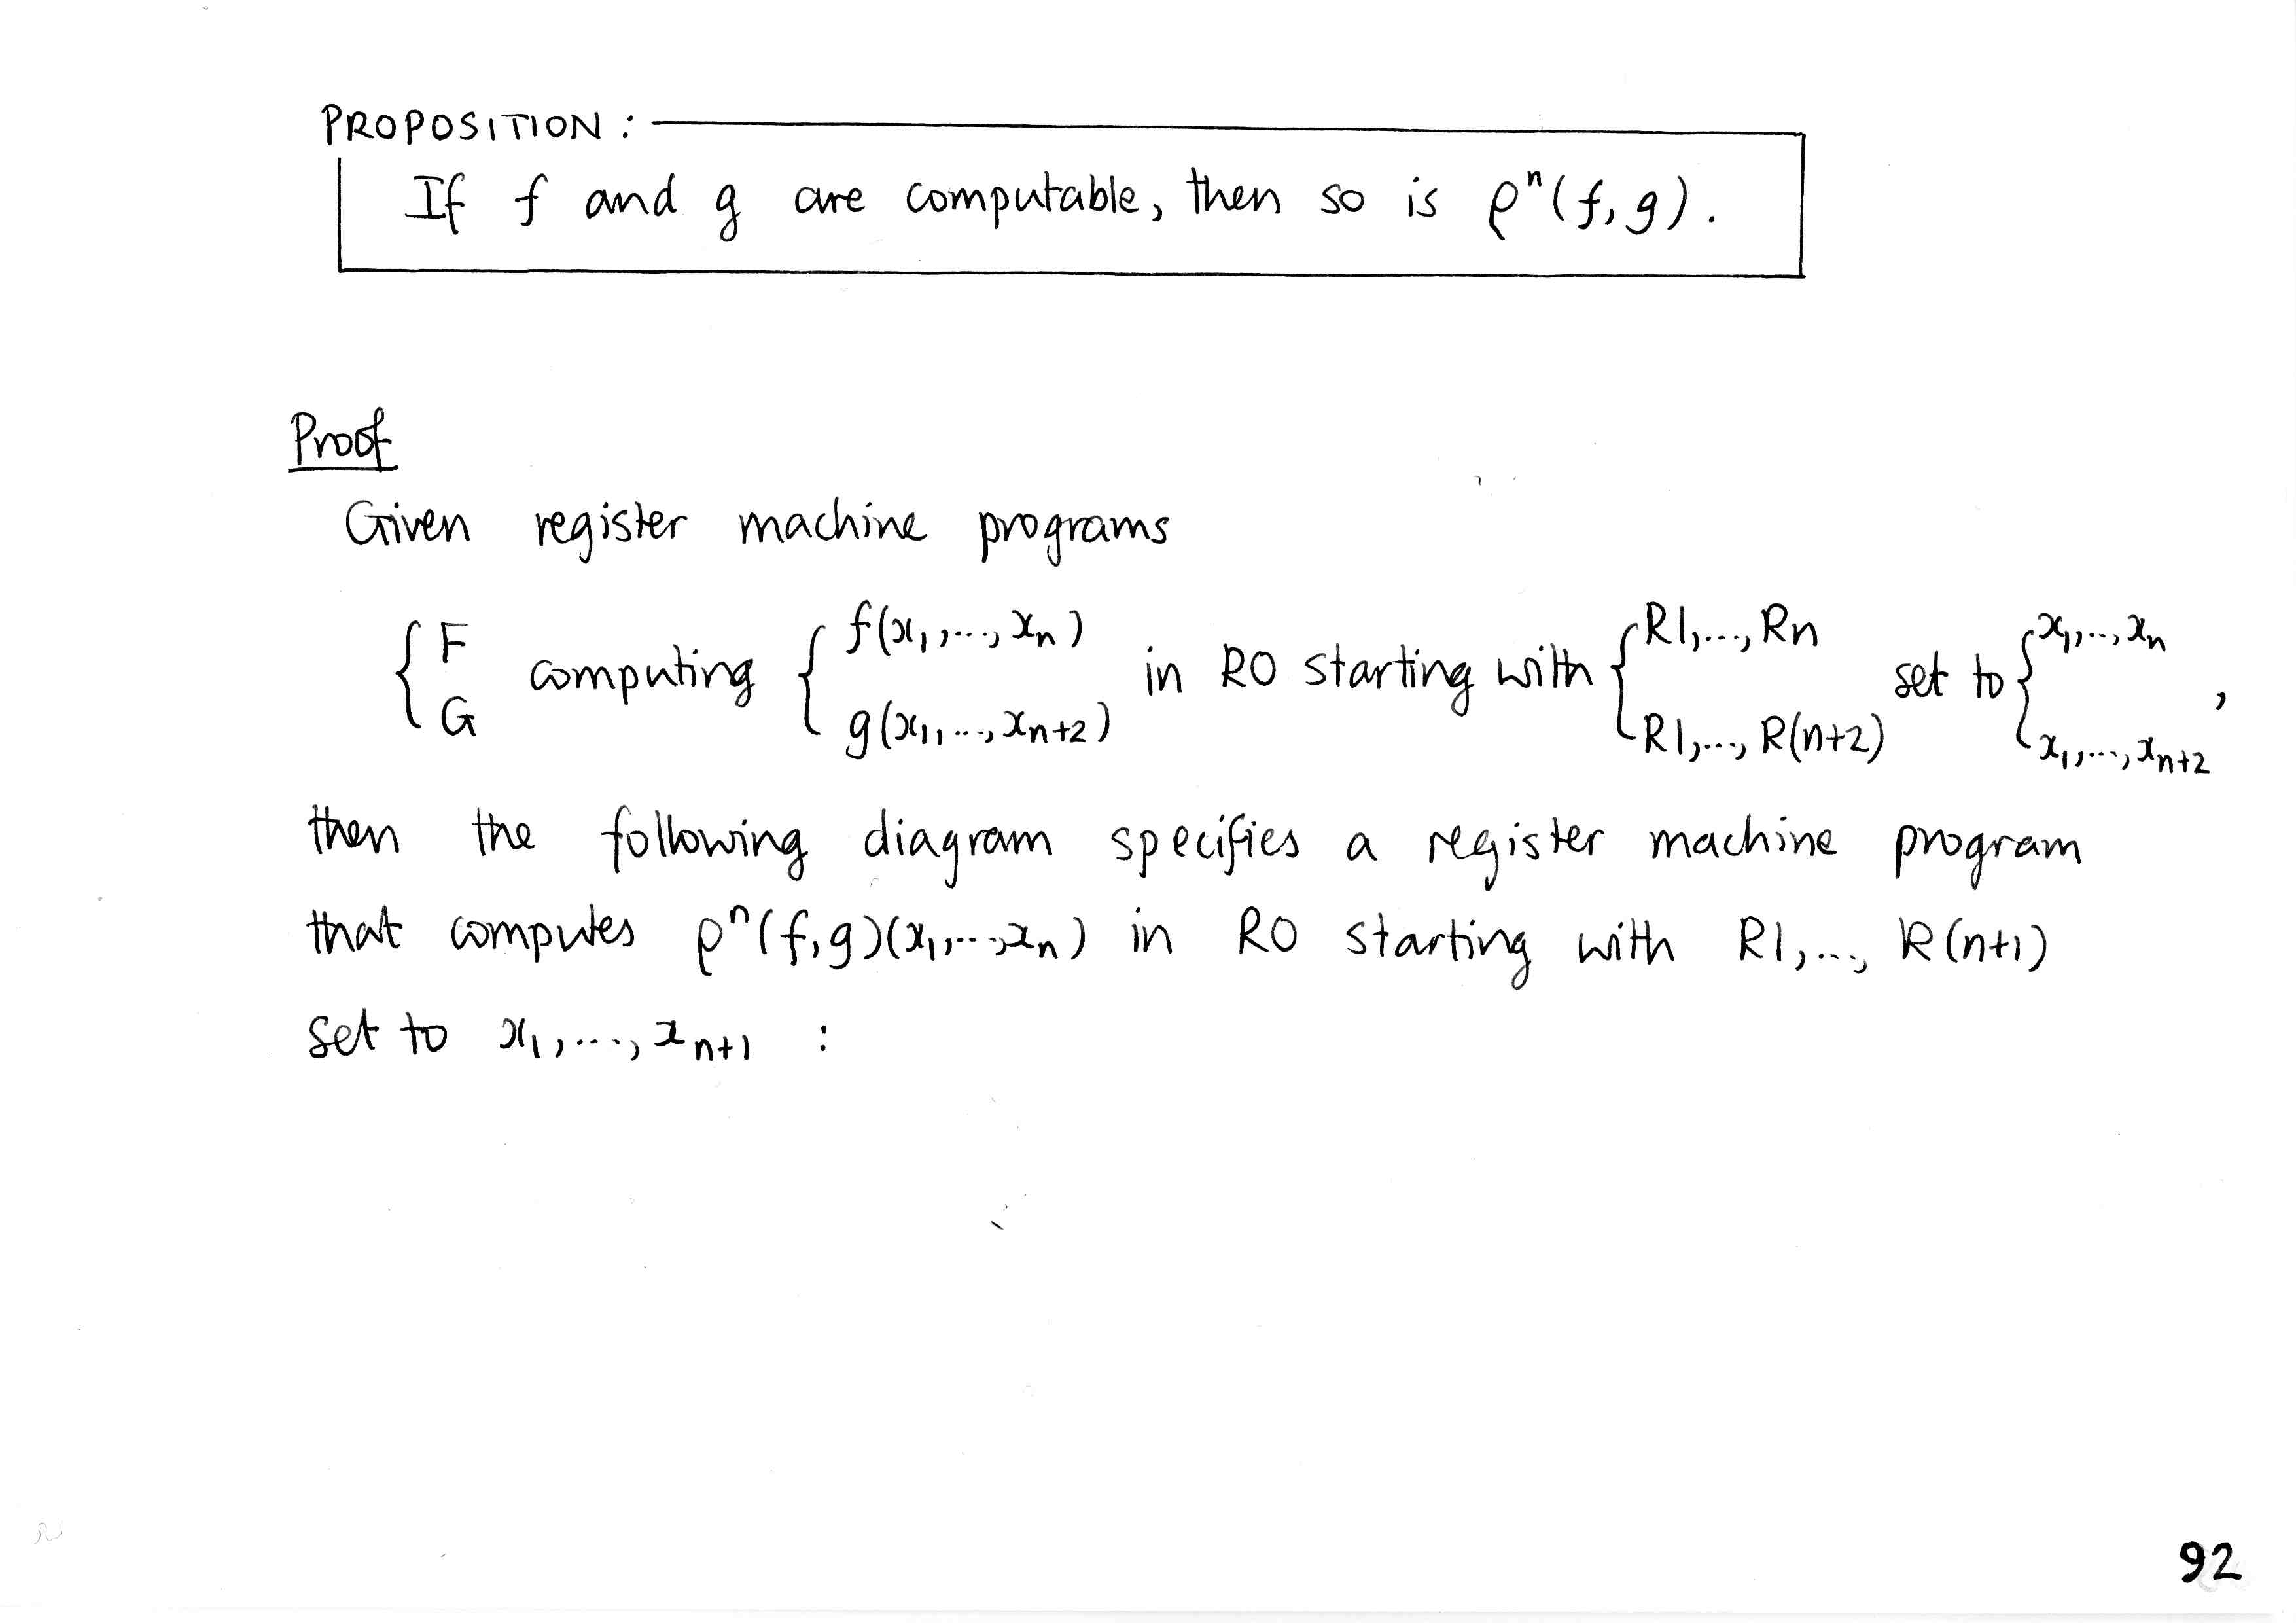 PROPOSITION:
If f and g are computable, then so is ρⁿ(f,g).
Proof
Given register machine programs
{ F G computing { f(x₁,...,xₙ) g(x₁,...,xₙ₊₂) in R0 starting with { R1,..., Rn R1,..., R(n+2) set to { x₁,..,xₙ x₁,...,xₙ₊₂ ,
then the following diagram specifies a register machine program
that computes ρⁿ(f,g)(x₁,...,xₙ) in R0 starting with R1,..., R(n+1)
set to x₁,...,xₙ₊₁ :
92